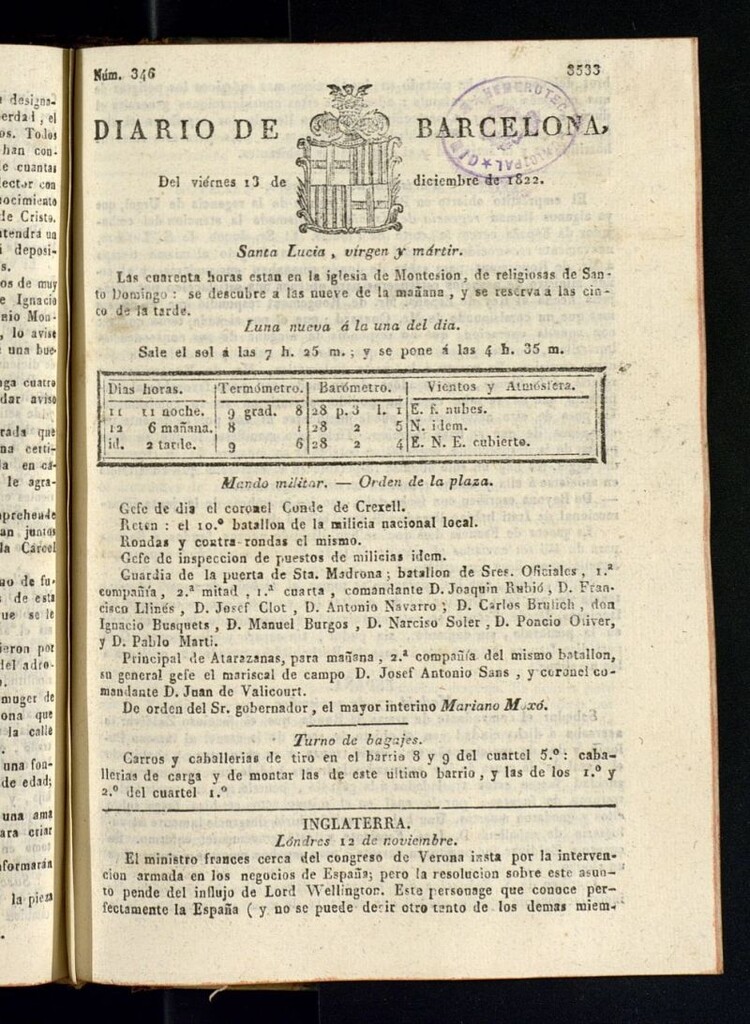 designa-
erdad, el
os. Todos
han con-
e cuantas
lector con
nocimiento
de Cristo.
ntendrá un
i deposi-
s.
os de muy
e Ignacio
nio Mon-
, lo avise
una bue-
ga cuatro
dar aviso
rada que
na certi-
a en ca-
le agra-
prehende
an juntos
la Carcel
no de fu-
de esta
ue se le
ieron por
del adro-
muger de
ona que
la calle
una fon-
de edad;
una ama
ara criar
nformarán
la pieza
Núm. 346 3533
DIARIO DE BARCELONA,
Del viérnes 13 de diciembre de 1822.
Santa Lucia, vírgen y mártir.
Las cuarenta horas estan en la iglesia de Montesion, de religiosas de San-
to Domingo: se descubre a las nueve de la mañana, y se reserva á las cin-
co de la tarde.
Luna nueva á la una del dia.
Sale el sol á las 7 h. 25 m.; y se pone á las 4 h. 35 m.
Dias horas. Termómetro. Barómetro. Vientos y Atmósfera.
11 11 noche. 9 grad. 8 28 p. 3 l. 1 E. f. nubes.
12 6 mañana. 8 1 28 2 5 N. idem.
id. 2 tarde. 9 6 28 2 4 E. N. E. cubierto.
Mando militar. — Orden de la plaza.
Gefe de dia el coronel Conde de Crexell.
Reten: el 10.º batallon de la milicia nacional local.
Rondas y contra-rondas el mismo.
Gefe de inspeccion de puestos de milicias idem.
Guardia de la puerta de Sta. Madrona; batallon de Sres. Oficiales, 1.ª
compañía, 2.ª mitad, 1.ª cuarta, comandante D. Joaquin Rubió, D. Fran-
cisco Llinés, D. Josef Clot, D. Antonio Navarro; D. Carlos Brulich, don
Ignacio Busquets, D. Manuel Burgos, D. Narciso Soler, D. Poncio Oliver,
y D. Pablo Marti.
Principal de Atarazanas, para mañana, 2.ª compañía del mismo batallon,
su general gefe el mariscal de campo D. Josef Antonio Sans, y coronel co-
mandante D. Juan de Valicourt.
De orden del Sr. gobernador, el mayor interino Mariano Moxó.
Turno de bagajes.
Carros y caballerias de tiro en el barrio 8 y 9 del cuartel 5.º: caba-
llerias de carga y de montar las de este ultimo barrio, y las de los 1.º y
2.º del cuartel 1.º
INGLATERRA.
Lóndres 12 de noviembre.
El ministro frances cerca del congreso de Verona insta por la interven-
cion armada en los negocios de España; pero la resolucion sobre este asun-
to pende del influjo de Lord Wellington. Este personage que conoce per-
fectamente la España (y no se puede decir otro tanto de los demas miem-